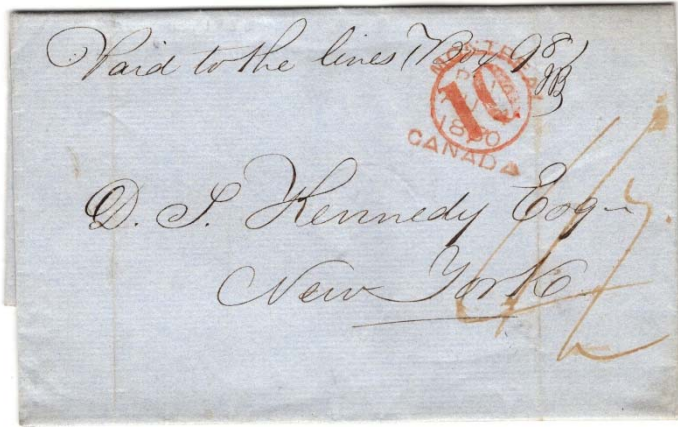 Paid to the lines Box 98
JB
MONTREAL
PAID
10
1850
CANADA
D. S. Kennedy Esq
New York